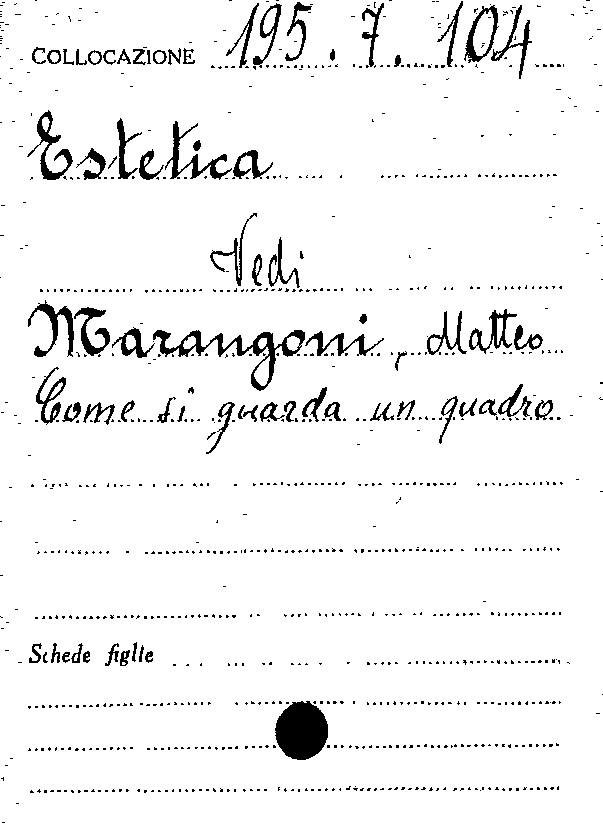 COLLOCAZIONE 195.7.104
Estetica
Vedi
Marangoni, Matteo
Come si guarda un quadro
Schede figlie